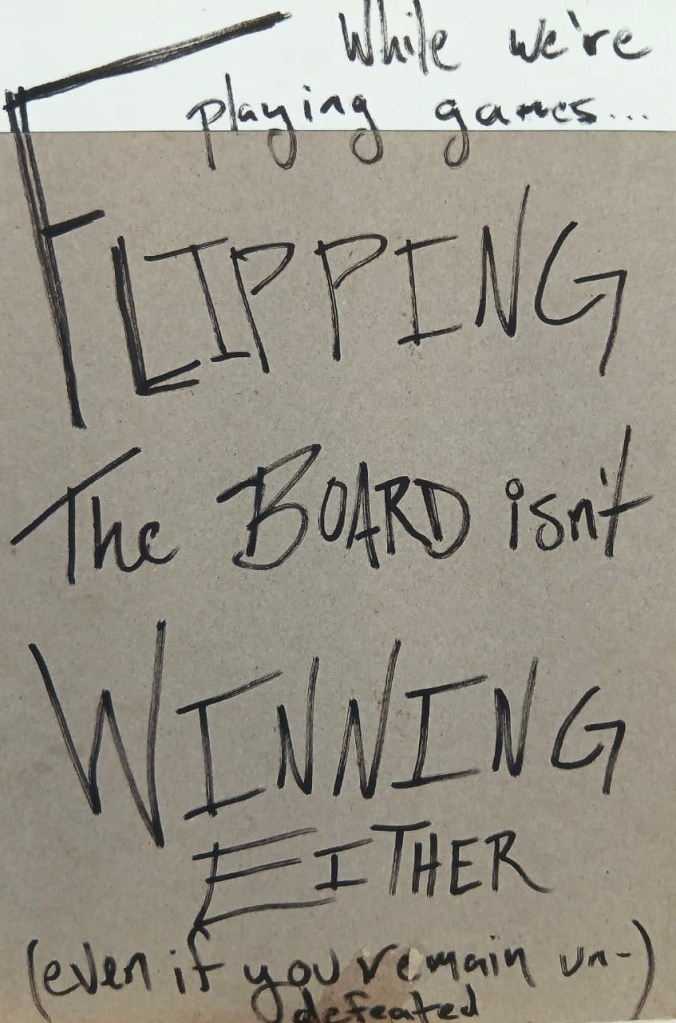 While we're
playing games...
FLIPPING
The BOARD isn't
WINNING
EITHER
(even if you remain un-)
defeated